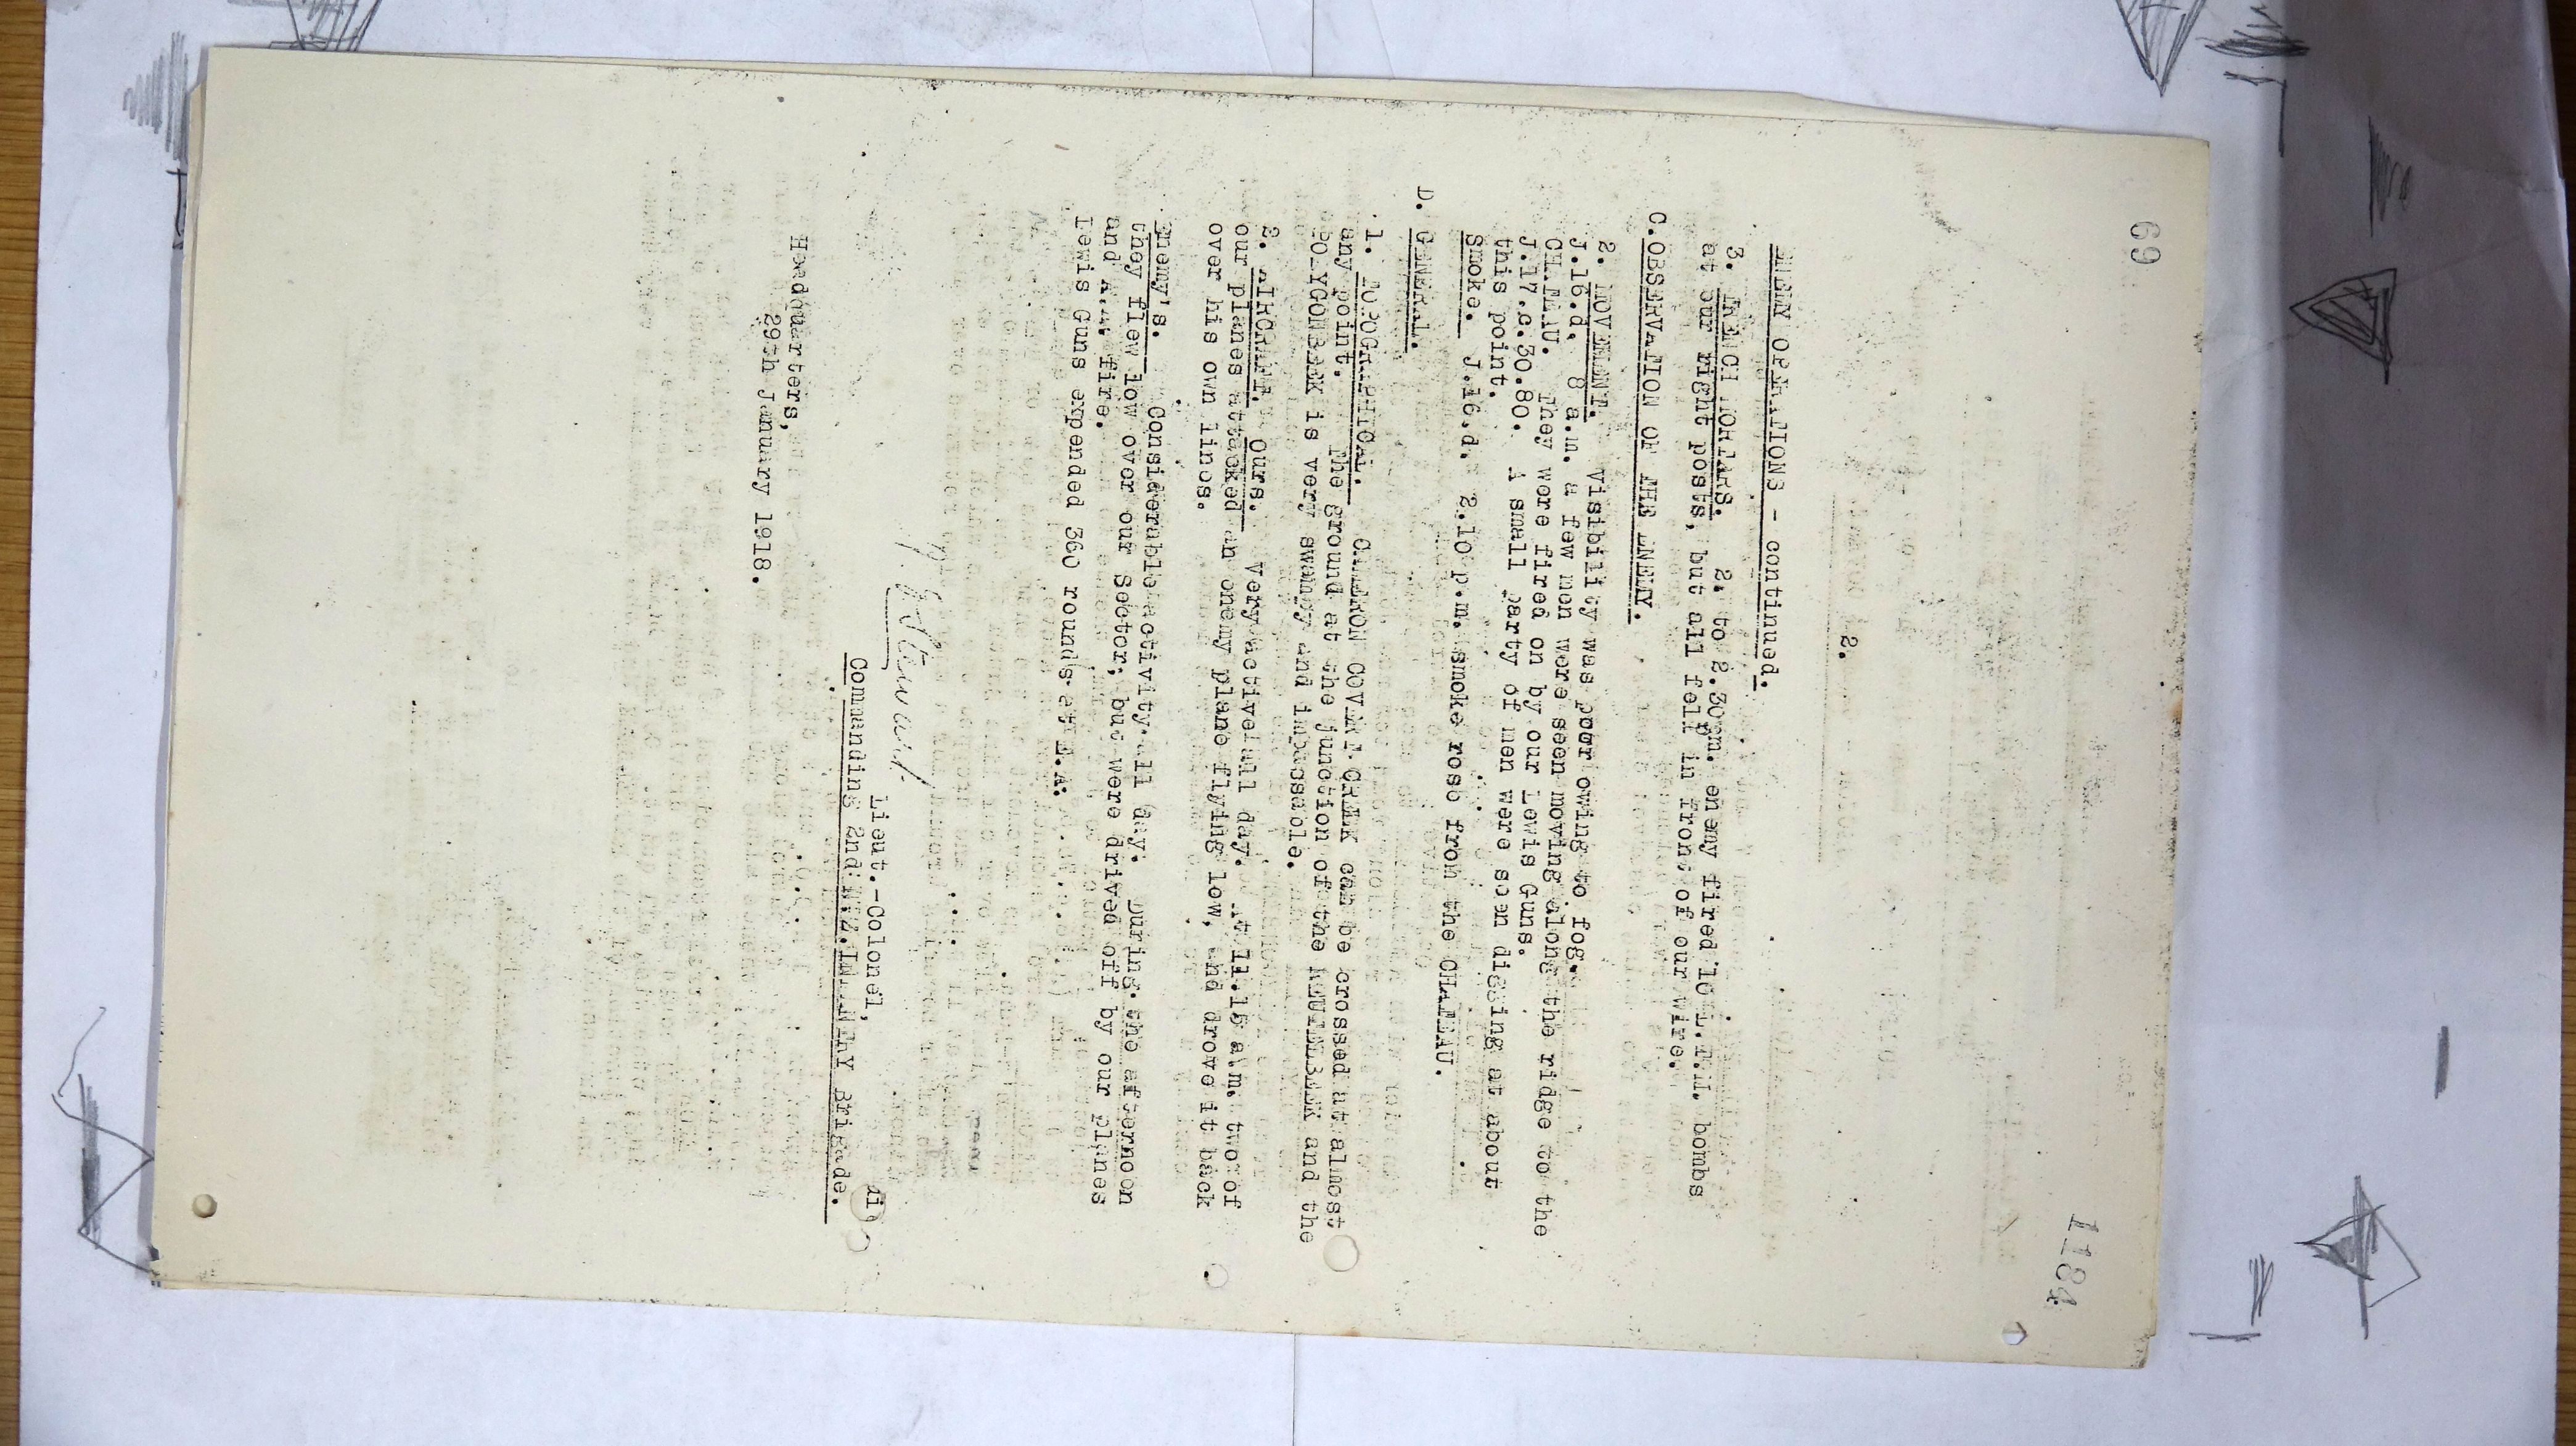 69
1184
2.
ENEMY OPERATIONS - continued.
3. TRENCH MORTARS. 2. to 2.30pm. enemy fired 10 L.T.M. bombs
at our right posts, but all fell in front of our wire.
C. OBSERVATION OF THE ENEMY.
2. MOVEMENT. Visibility was poor owing to fog.
J.16.d. 8 a.m. a few men were seen moving along the ridge to the
CHATEAU. They were fired on by our Lewis Guns.
J.17.c.30.80. A small party of men were seen digging at about
this point.
Smoke. J.16.d. 2.10 p.m. smoke rose from the CHATEAU.
D. GENERAL.
1. TOPOGRAPHICAL. CAMERON COVERT CREEK can be crossed at almost
any point. The ground at the junction of the REUTELBEEK and the
POLYGONBEEK is very swampy and impassable.
2. AIRCRAFT. Ours. Very active all day. At 11.15 a.m. two of
our planes attacked an enemy plane flying low, and drove it back
over his own lines.
Enemy's. Considerable activity all day. During the afternoon
they flew low over our Sector, but were drived off by our planes
and A.A. fire.
Lewis Guns expended 360 rounds at E.A.
Stewart
Lieut.-Colonel,
Commanding 2nd N.Z. INFANTRY Brigade.
Headquarters,
29th January 1918.